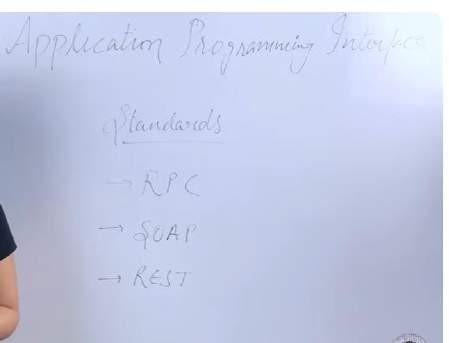 Application Programming Interface
Standards
→ RPC
→ SOAP
→ REST